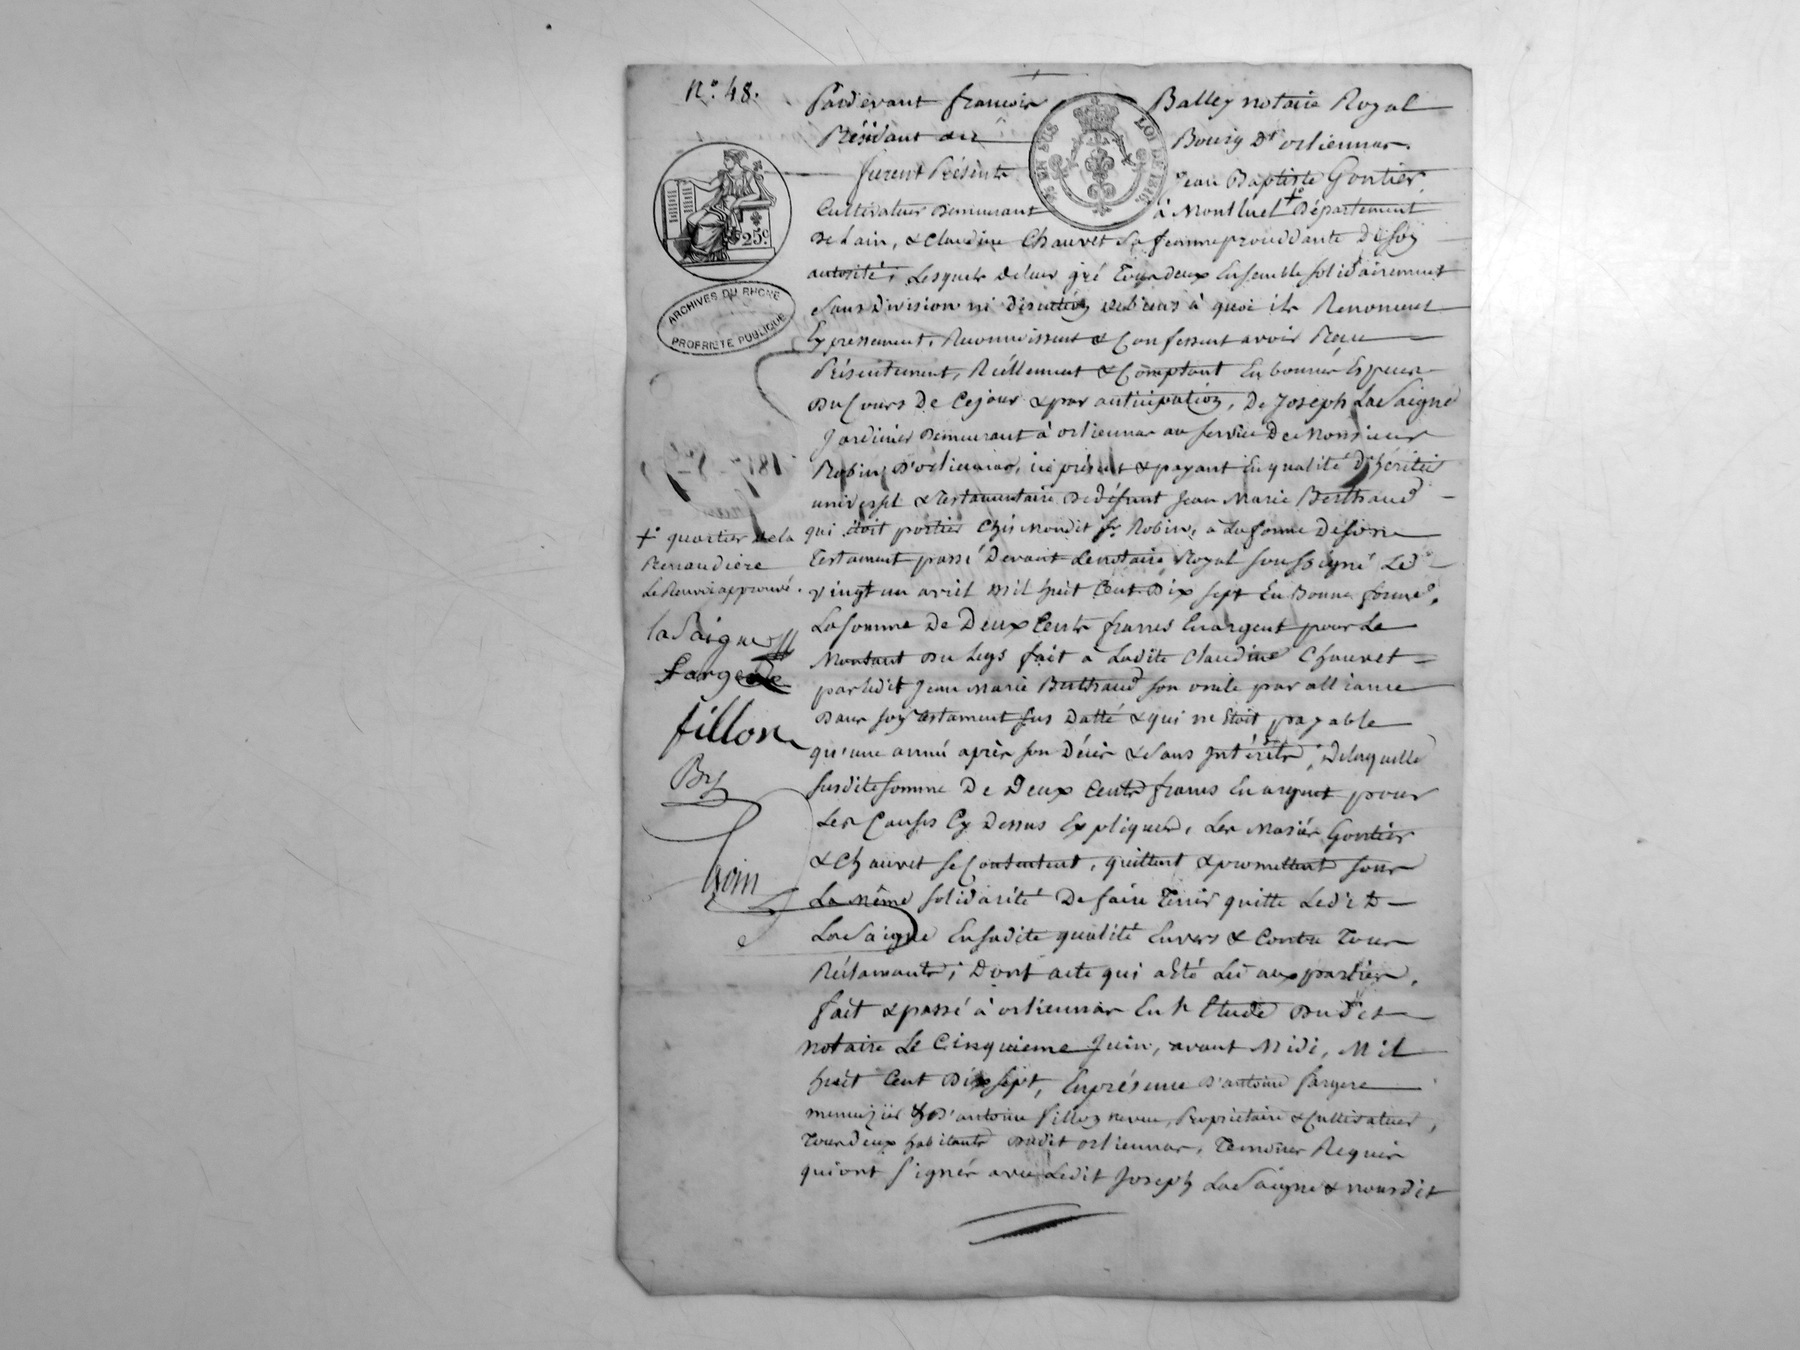 N.° 48.
Pardevant francois Balley notaire Royal
Résidant au Bourg D'orliennas.
furent Présents Jean Baptiste Gontier
Cultivateur Demeurant à Montluel + Département
De Lain, & Claudine Chauvet Sa femme procédante De son
autorité, Lesquels de leur gré Tous deux Ensemble solidairement
Sans Division ni Discution de biens à quoi ils Renoncent
Expressement, Reconnoissent & Confessent avoir Reçu
Présentement, Réellement & Comptant En bonnes Espèces
Du Cours De Ce jour & par anticipation, De Joseph LaSaigne
Jardinier Demeurant à orliennas au service De Monsieur
Robin D'orliennas, ici présent & payant En qualité D'héritier
universel & Testamentaire De défunt Jean Marie Berthaud
qui étoit portier Chés Mondit Sr. Robin, à la forme De son
Testament passé Devant Le notaire Royal soussigné Le
vingt un avril Mil huit Cent Dix sept En Bonne forme,
La somme De Deux Cents francs En argent pour Le
Montant Du Legs fait à Ladite Claudine Chauvet
par Ledit Jean Marie Berthaud son oncle par alliance
Dans son testament sus Datté & qui ne Etoit payable
qu'une année après son Décès & Sans Intérêts, De laquelle
susdite somme De Deux Cents francs En argent pour
Les Causes Cy Dessus Expliquées, Les Mariés Gontier
& Chauvet se Contentent, quittent & promettent sous
La même solidarité De faire Tenir quitte Ledit
LaSaigne En sadite qualité Envers & Contre Tous
Réclamants; Dont acte qui a Eté Lu aux parties.
fait & passé à orliennas En L'Etude Dudit
notaire Le Cinquieme Juin, avant Midi, Mil
huit Cent Dix sept, En présence D'antoine fargere
menuzier & D'antoine fillon neveu, Propriétaire & Cultivateur,
Tous deux habitants Dudit orliennas, Temoins Requis
qui ont signés avec Ledit Joseph LaSaigne & nousdit
25.c
ARCHIVES DU RHONE
PROPRIETE PUBLIQUE
+ quartier de la
Renaudière
Le Renvoi approuvé.
laSaigne
fargere
fillon
By
LOI DE 1816